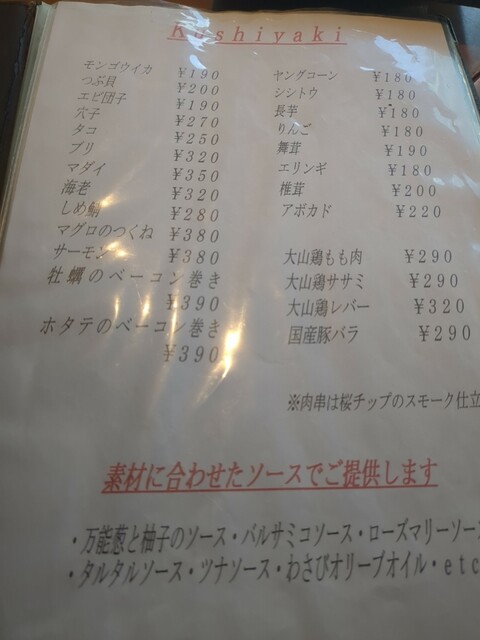 Kushiyaki
モンゴウイカ ¥190
つぶ貝 ¥200
エビ団子 ¥190
穴子 ¥270
タコ ¥250
ブリ ¥320
マダイ ¥350
海老 ¥320
しめ鯖 ¥280
マグロのつくね ¥380
サーモン ¥380
牡蠣のベーコン巻き
¥390
ホタテのベーコン巻き
¥390
ヤングコーン ¥180
シシトウ ¥180
長芋 ¥180
りんご ¥180
舞茸 ¥190
エリンギ ¥180
椎茸 ¥200
アボカド ¥220
大山鶏もも肉 ¥290
大山鶏ササミ ¥290
大山鶏レバー ¥320
国産豚バラ ¥290
※肉串は桜チップのスモーク仕立
素材に合わせたソースでご提供します
・万能葱と柚子のソース・バルサミコソース・ローズマリーソース
・タルタルソース・ツナソース・わさびオリーブオイル・etc